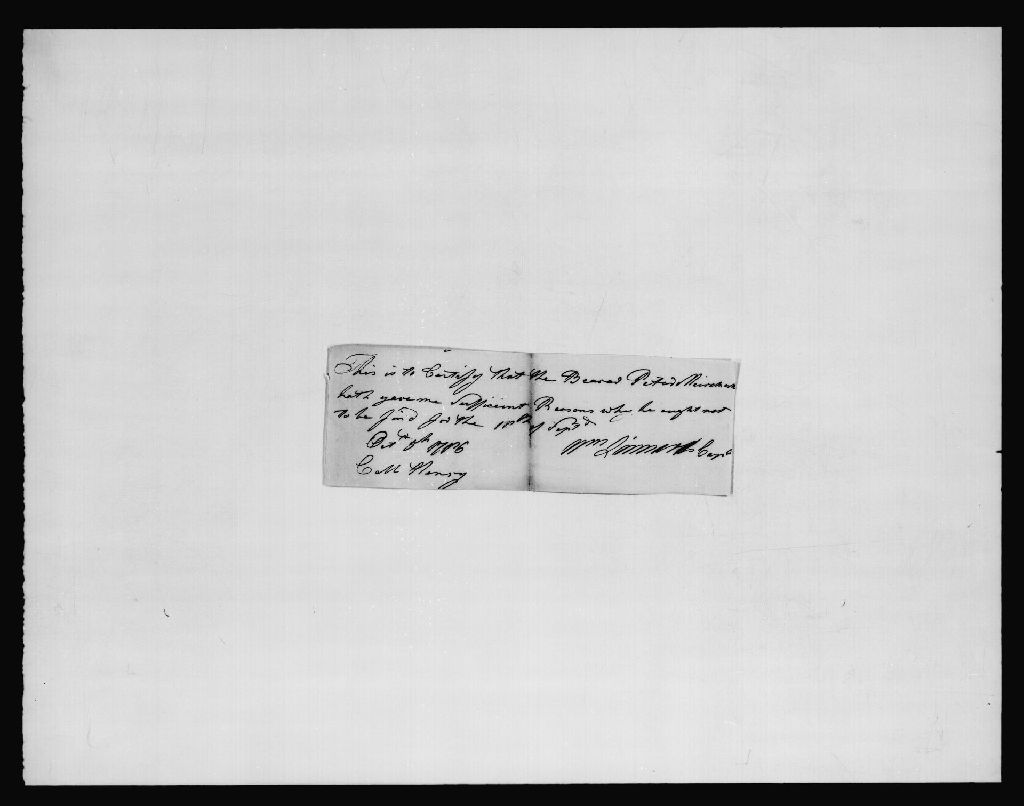 This is to Certify that the Bearer Peter
hath gave me Sufficient Reasons why he ought not
to be find for the of Sept
Octr 8th 1786
Coll Henry
Wm Capt